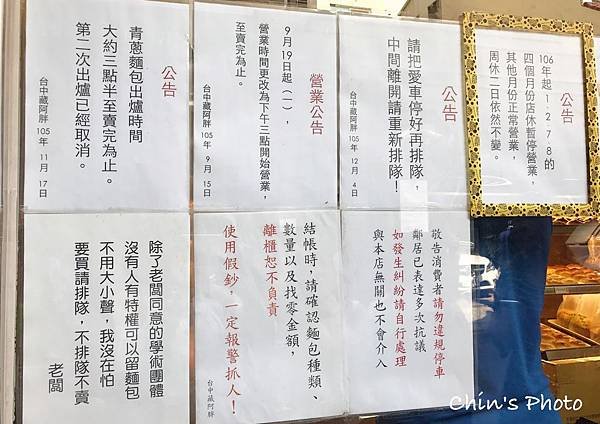 公告
106年起1、2、7、8的
四個月份店休暫停營業，
其他月份正常營業，
周休二日依然不變。
公告
請把愛車停好再排隊，
中間離開請重新排隊！
台中藏阿胖 105年12月4日
營業公告
9月19日起（一），
營業時間更改為下午三點開始營業，
至賣完為止。
台中藏阿胖 105年9月15日
公告
青蔥麵包出爐時間
大約三點半至賣完為止。
第二次出爐已經取消。
台中藏阿胖 105年11月17日
敬告消費者請勿違規停車
鄰居已表達多次抗議
如發生糾紛請自行處理
與本店無關也不會介入
結帳時，請確認麵包種類、
數量以及找零金額，
離櫃恕不負責
使用假鈔，一定報警抓人！
台中藏阿胖
除了老闆同意的學術團體
沒有人有特權可以留麵包
不用大小聲，我沒在怕
要買請排隊，不排隊不賣
老闆
Chin's Photo